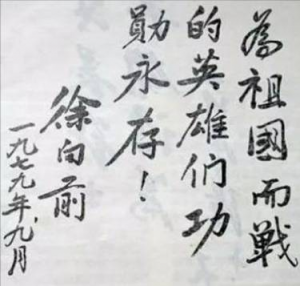 為祖國而戰
的英雄们功
勛永存！
徐向前
一九七九年.九.月